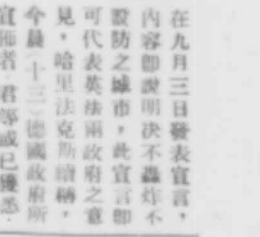 在九月三日發表宣言，
內容卽說明決不轟炸不
設防之城市，此宣言卽
可代表英法兩政府之意
見，哈里法克斯續稱，
今晨（十三）德國政府所
宣佈者，君等或已獲悉．